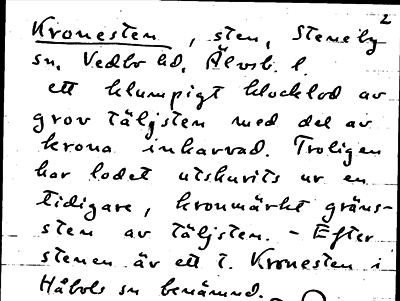 2
Kronesten, sten, Steneby
sn, Vedbo hd, Älvsb. l.
ett klumpigt klocklod av
grov täljsten med del av
krona inkarvad. Troligen
har lodet utskurits ur en
tidigare, kronmärkt gräns-
sten av täljsten. - Efter
stenen är ett t. Kronesten i
Håbols sn benämnd.